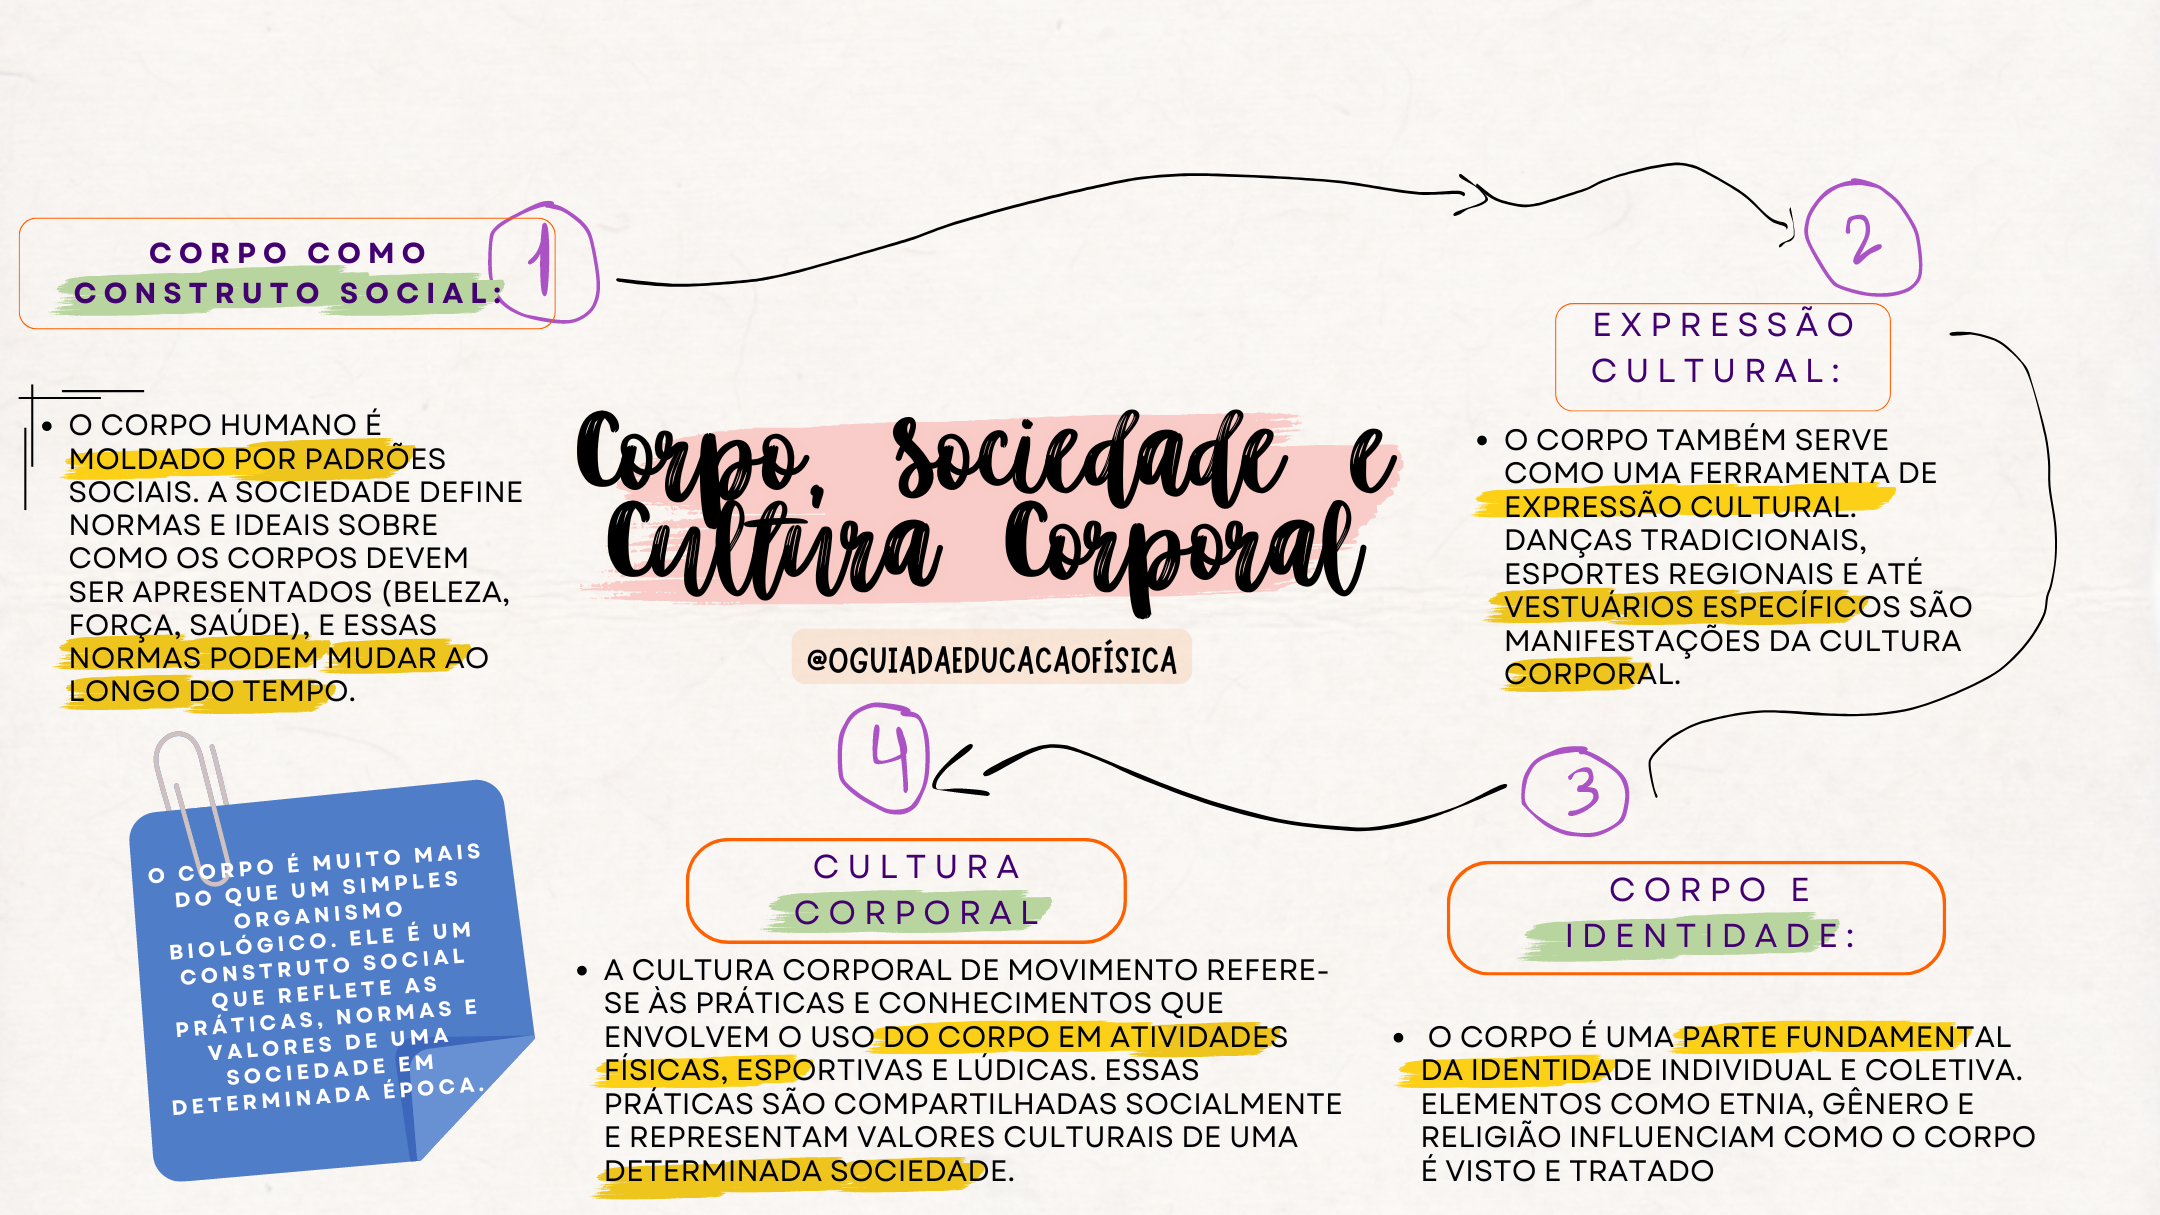 CORPO COMO
CONSTRUTO SOCIAL:
1
O CORPO HUMANO É
MOLDADO POR PADRÕES
SOCIAIS. A SOCIEDADE DEFINE
NORMAS E IDEAIS SOBRE
COMO OS CORPOS DEVEM
SER APRESENTADOS (BELEZA,
FORÇA, SAÚDE), E ESSAS
NORMAS PODEM MUDAR AO
LONGO DO TEMPO.
O CORPO É MUITO MAIS
DO QUE UM SIMPLES
ORGANISMO
BIOLÓGICO. ELE É UM
CONSTRUTO SOCIAL
QUE REFLETE AS
PRÁTICAS, NORMAS E
VALORES DE UMA
SOCIEDADE EM
DETERMINADA ÉPOCA.
Corpo, Sociedade e
Cultura Corporal
@OGUIADAEDUCACAOFÍSICA
2
EXPRESSÃO
CULTURAL:
O CORPO TAMBÉM SERVE
COMO UMA FERRAMENTA DE
EXPRESSÃO CULTURAL.
DANÇAS TRADICIONAIS,
ESPORTES REGIONAIS E ATÉ
VESTUÁRIOS ESPECÍFICOS SÃO
MANIFESTAÇÕES DA CULTURA
CORPORAL.
3
CORPO E
IDENTIDADE:
O CORPO É UMA PARTE FUNDAMENTAL
DA IDENTIDADE INDIVIDUAL E COLETIVA.
ELEMENTOS COMO ETNIA, GÊNERO E
RELIGIÃO INFLUENCIAM COMO O CORPO
É VISTO E TRATADO
4
CULTURA
CORPORAL
A CULTURA CORPORAL DE MOVIMENTO REFERE-
SE ÀS PRÁTICAS E CONHECIMENTOS QUE
ENVOLVEM O USO DO CORPO EM ATIVIDADES
FÍSICAS, ESPORTIVAS E LÚDICAS. ESSAS
PRÁTICAS SÃO COMPARTILHADAS SOCIALMENTE
E REPRESENTAM VALORES CULTURAIS DE UMA
DETERMINADA SOCIEDADE.